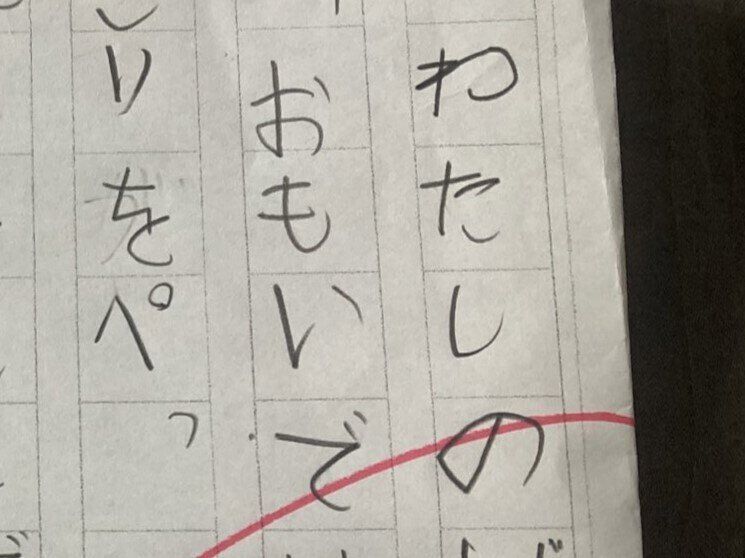 わたしの
おもいで
りをぺっ